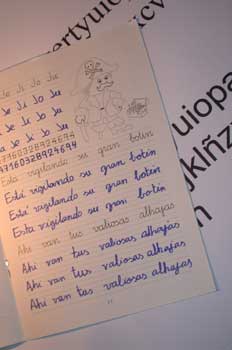 ertyuio
xcv
uiopa
jklñz
Je Ji Jo Ju
Je Ji Jo Ju
Je Ji Jo Ju
Je Ji Jo Ju
47160328924694
47160328924694
Está vigilando su gran botín
Está vigilando su gran botín
Está vigilando su gran botín
Esta vigilando su gran botín
Ahí van tus valiosas alhajas
Ahí van tus valiosas alhajas
Ahí van tus valiosas alhajas
Ahí van tus valiosas alhajas